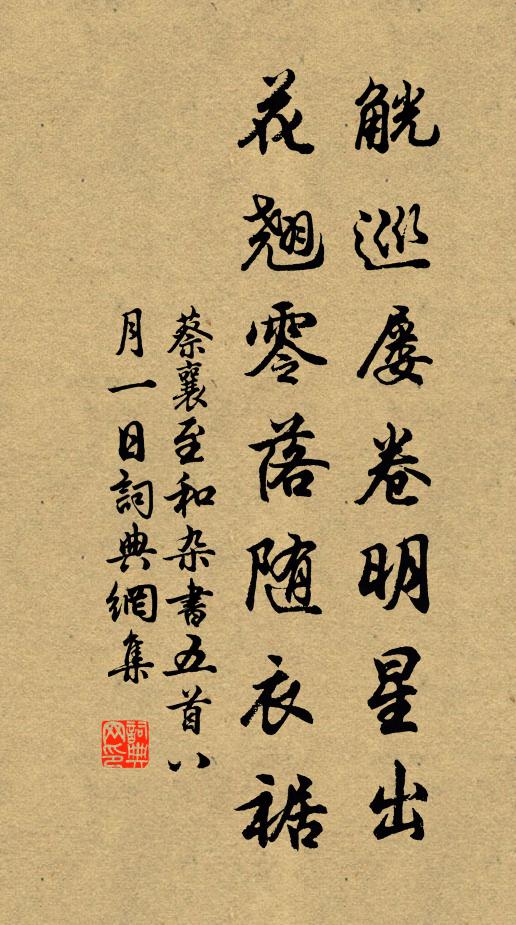 觥巡屢卷明星出
花翹零落随衣裾
蔡襄至和杂書五首八
月一日詞典網集
詞典网印